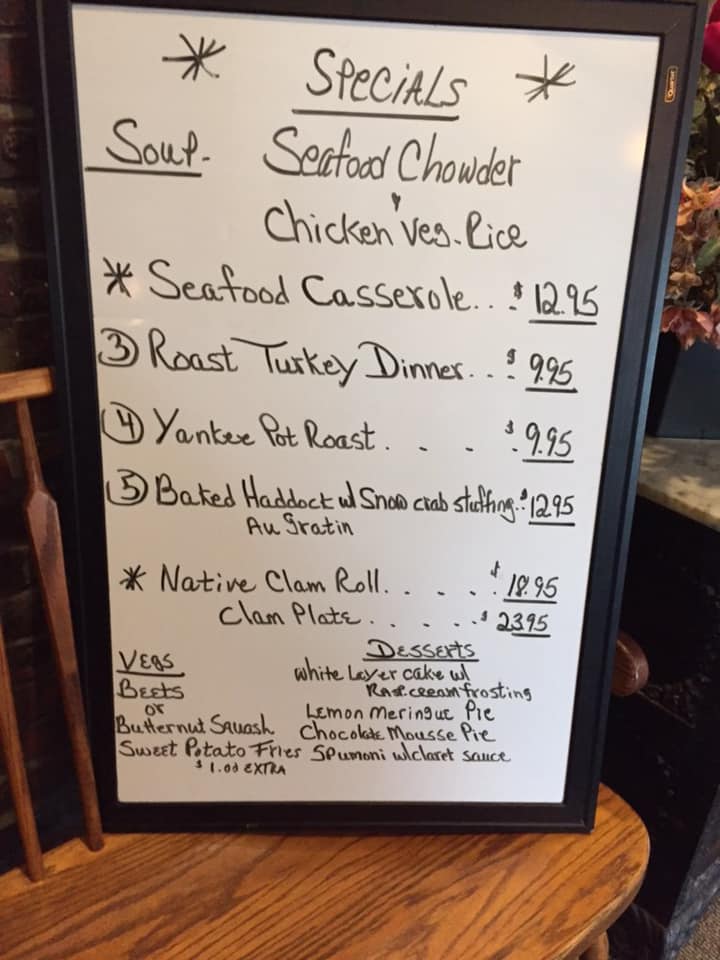 * Specials *
Soup- Seafood Chowder
Chicken Veg. Rice
* Seafood Casserole.. $12.95
③ Roast Turkey Dinner... $9.95
④ Yankee Pot Roast. . . $9.95
⑤ Baked Haddock w/ Snow crab stuffing.. $12.95
Au Gratin
* Native Clam Roll. . . . . $18.95
Clam Plate. . . . .. $23.95
Vegs
Beets
or
Butternut Squash
Sweet Potato Fries
$1.00 EXTRA
Desserts
White Layer cake w/
Rasp.cream frosting
Lemon Meringue Pie
Chocolate Mousse Pie
Spumoni w/claret sauce
Quartet